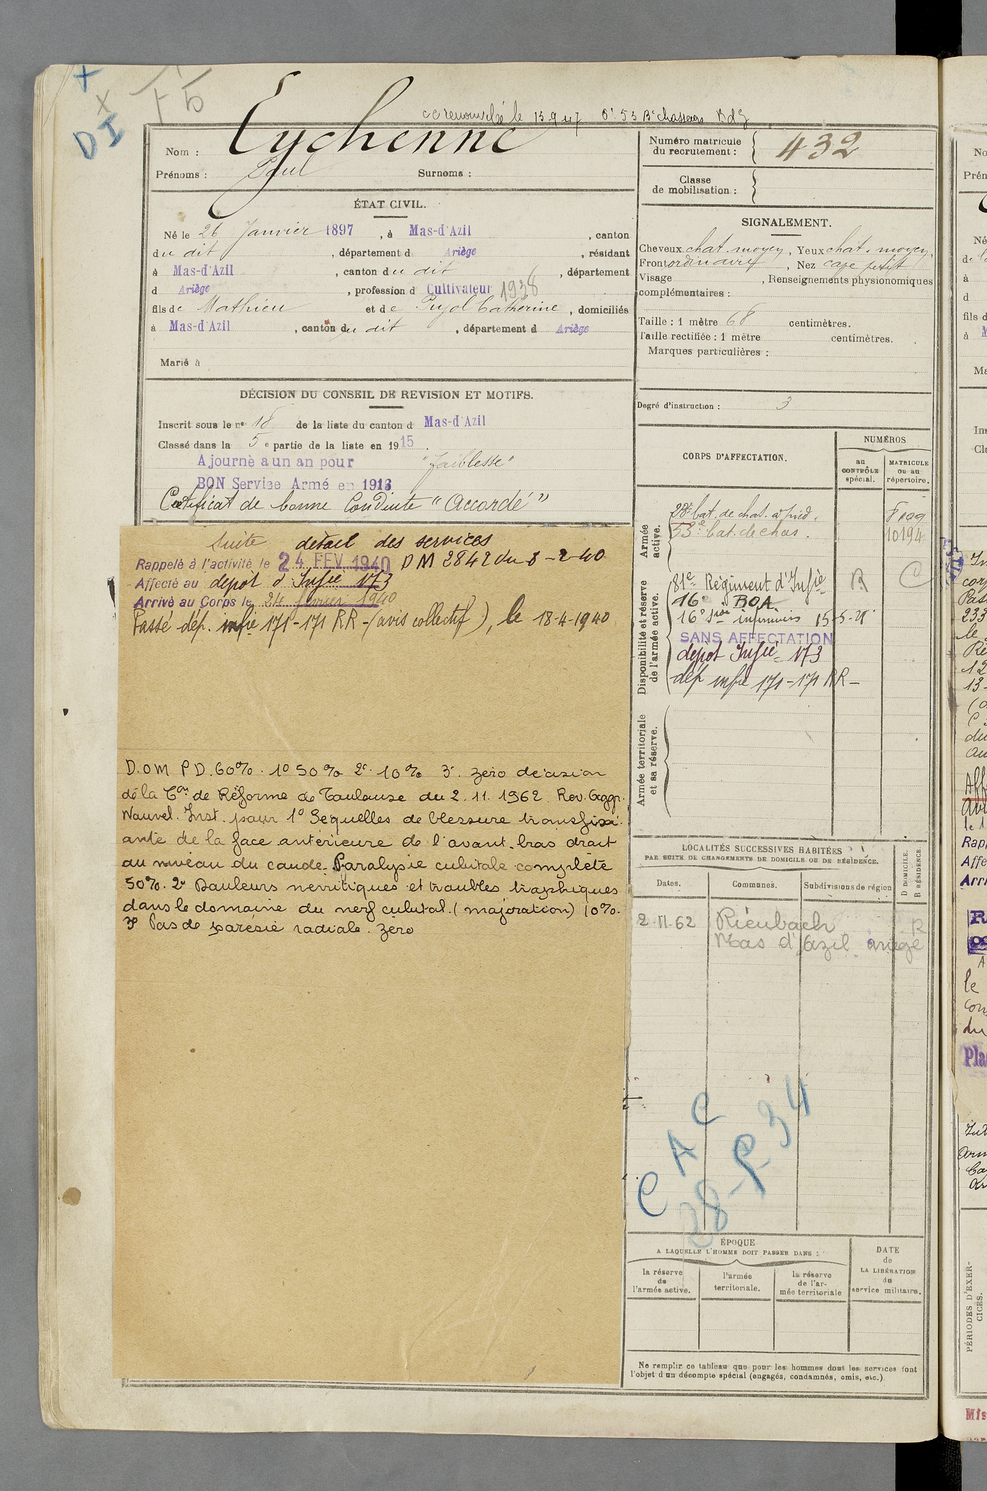 DI
cc renouvelée le 15.9.47 Dt 53 Bon Chasseurs
Nom : Eychenne
Prénoms : Paul Surnoms :
ÉTAT CIVIL.
Né le 26 Janvier 1897, à Mas-d'Azil, canton
du dit, département d Ariège, résidant
à Mas-d'Azil, canton du dit, département
d Ariège, profession d Cultivateur 1938
fils de Mathieu et de Pujol Catherine, domiciliés
à Mas-d'Azil, canton du dit, département d Ariège
Marié à
DÉCISION DU CONSEIL DE REVISION ET MOTIFS.
Inscrit sous le n° 18 de la liste du canton d Mas-d'Azil
Classé dans la 5e partie de la liste en 1915
Ajourné a un an pour "faiblesse"
BON Service Armé en 1916
Certificat de bonne Conduite "Accordé"
Suite détail des services
Rappelé à l'activité le 24 FEV 1940 DM 2842 du 8-2-40
Affecté au depot d'Infie 173
Arrivé au Corps le 24 février 1940
Passé dép. infie 171-171 RR-(avis collectif), le 18-4-1940
D.OM P D.60%. 1° 50% 2° 10% 3° zéro décision
de la Con de Réforme de Toulouse du 2.11.1962 Rev. Aggr.
Nouvel. Inst. pour 1° Sequelles de blessure transfixi
ante de la face antérieure de l'avant-bras droit
au niveau du coude. Paralysie cubitale complète
50%. 2° Douleurs nevritiques et troubles trophiques
dans le domaine du nerf cubital. (majoration) 10%.
3° Pas de paresie radiale. zéro
Numéro matricule
du recrutement : 432
Classe
de mobilisation :
SIGNALEMENT.
Cheveux chat. moyen, Yeux chat. moyen,
Front ordinaire, Nez cave petit
Visage , Renseignements physionomiques
complémentaires :
Taille : 1 mètre 68 centimètres.
Taille rectifiée : 1 mètre centimètres.
Marques particulières :
Degré d'instruction : 3
CORPS D'AFFECTATION.
NUMÉROS
au CONTRÔLE spécial.
MATRICULE ou au répertoire.
Armée active.
28e bat. de chas. à pied.
53e bat. de chas. 10194
Disponibilité et réserve de l'armée active.
81e Régiment d'Infie R C
16e BOA
16e Son infirmiers 15-5-
SANS AFFECTATION
depot Infie 173
dép infie 171-171 RR-
Armée territoriale et sa réserve.
LOCALITÉS SUCCESSIVES HABITÉES
PAR SUITE DE CHANGEMENTS DE DOMICILE OU DE RÉSIDENCE.
Dates.
Communes.
Subdivisions de région
D DOMICILE.
R RÉSIDENCE
2-11-62 Rieubach R
Mas d'Azil ariège
C A C
28-P-34
ÉPOQUE
A LAQUELLE L'HOMME DOIT PASSER DANS :
la réserve de l'armée active.
l'armée territoriale.
la réserve de l'armée territoriale
DATE de LA LIBÉRATION du service militaire.
Ne remplir ce tableau que pour les hommes dont les services font
l'objet d'un décompte spécial (engagés, condamnés, omis, etc.)
PÉRIODES D'EXERCICES.